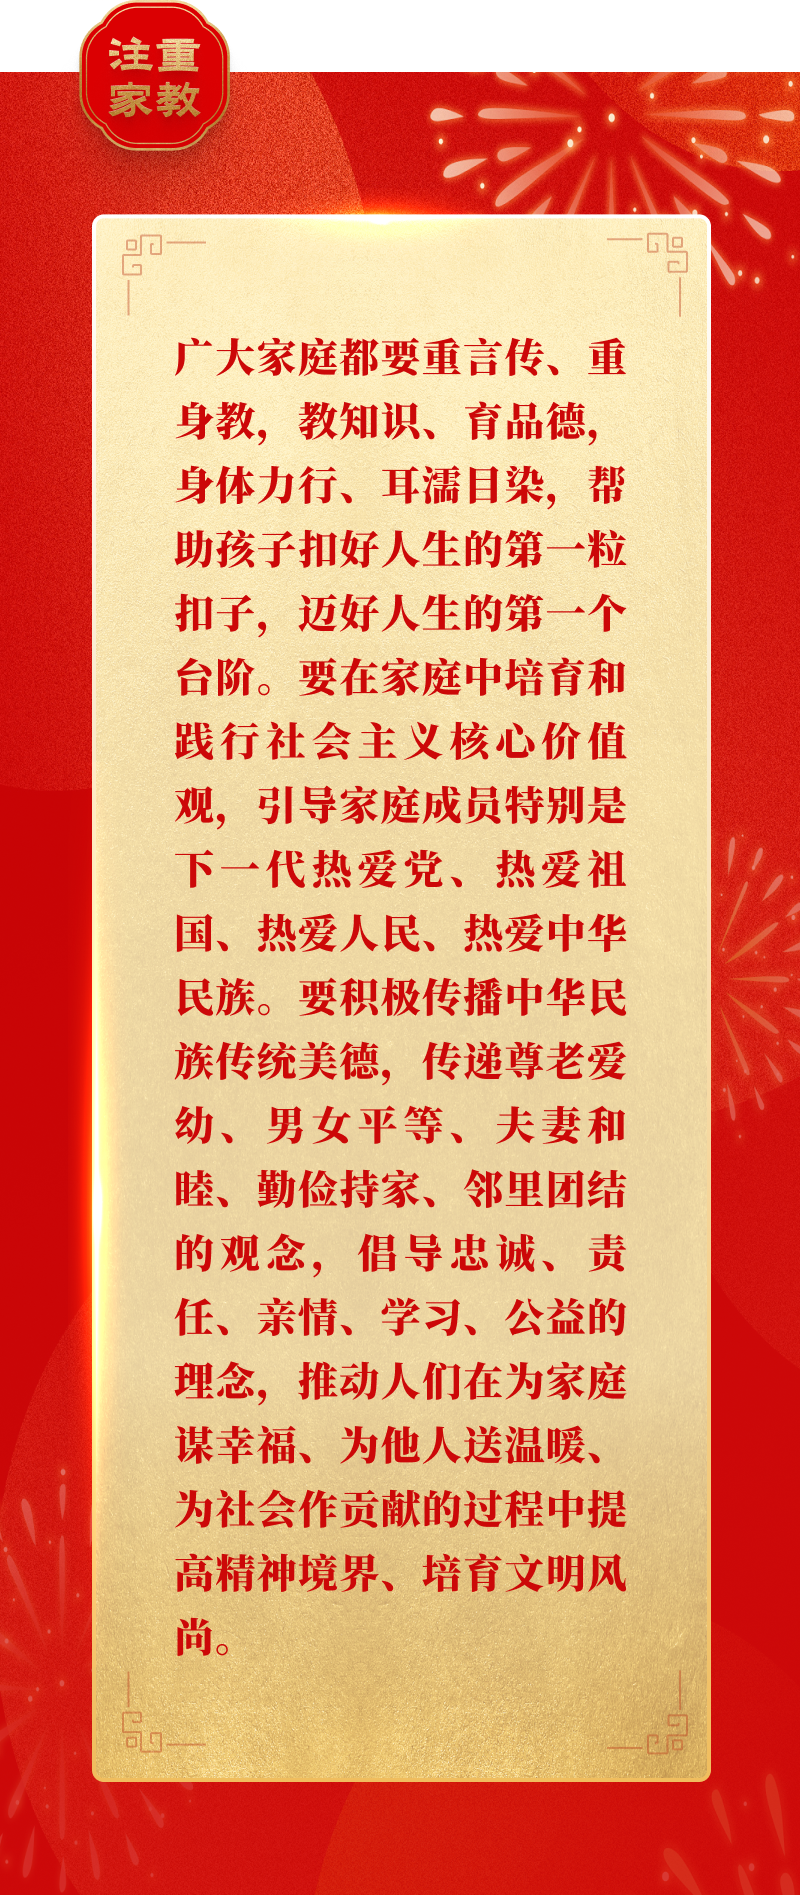 注重
家教
广大家庭都要重言传、重
身教，教知识、育品德，
身体力行、耳濡目染，帮
助孩子扣好人生的第一粒
扣子，迈好人生的第一个
台阶。要在家庭中培育和
践行社会主义核心价值
观，引导家庭成员特别是
下一代热爱党、热爱祖
国、热爱人民、热爱中华
民族。要积极传播中华民
族传统美德，传递尊老爱
幼、男女平等、夫妻和
睦、勤俭持家、邻里团结
的观念，倡导忠诚、责
任、亲情、学习、公益的
理念，推动人们在为家庭
谋幸福、为他人送温暖、
为社会作贡献的过程中提
高精神境界、培育文明风
尚。